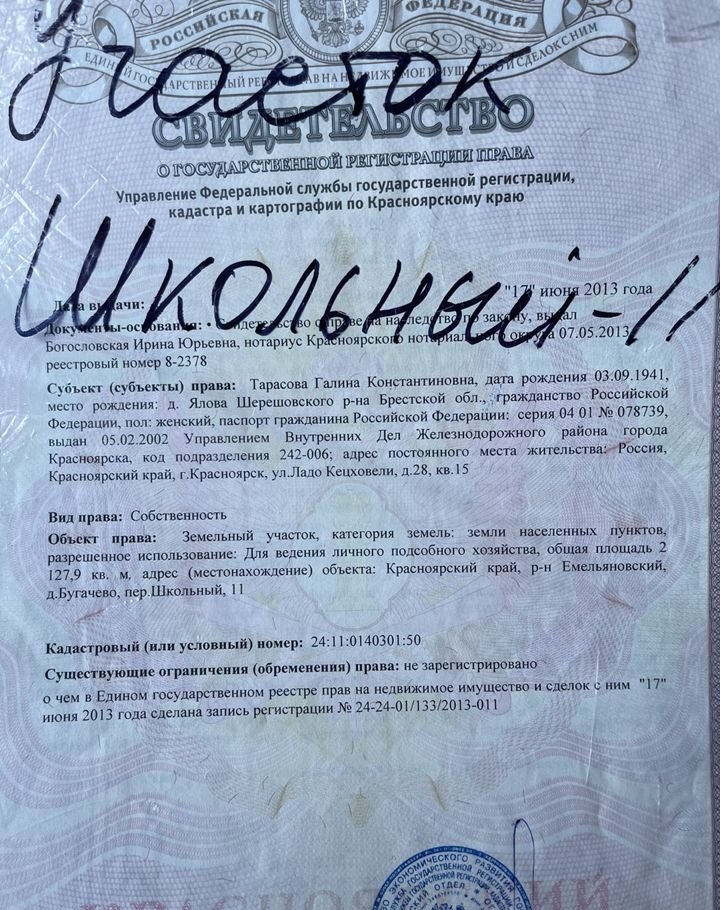 РОССИЙСКАЯ ФЕДЕРАЦИЯ
ЕДИНЫЙ ГОСУДАРСТВЕННЫЙ РЕЕСТР ПРАВ НА НЕДВИЖИМОЕ ИМУЩЕСТВО И СДЕЛОК С НИМ
Участок
СВИДЕТЕЛЬСТВО
О ГОСУДАРСТВЕННОЙ РЕГИСТРАЦИИ ПРАВА
Управление Федеральной службы государственной регистрации,
кадастра и картографии по Красноярскому краю
Школьный-11
Дата выдачи: "17" июня 2013 года
Документы-основания: • Свидетельство о праве на наследство по закону, выдал
Богословская Ирина Юрьевна, нотариус Красноярского нотариального округа 07.05.2013
реестровый номер 8-2378
Субъект (субъекты) права: Тарасова Галина Константиновна, дата рождения 03.09.1941,
место рождения: д. Ялова Шерешовского р-на Брестской обл., гражданство Российской
Федерации, пол: женский, паспорт гражданина Российской Федерации: серия 04 01 № 078739,
выдан 05.02.2002 Управлением Внутренних Дел Железнодорожного района города
Красноярска, код подразделения 242-006; адрес постоянного места жительства: Россия,
Красноярский край, г.Красноярск, ул.Ладо Кецховели, д.28, кв.15
Вид права: Собственность
Объект права: Земельный участок, категория земель: земли населенных пунктов,
разрешенное использование: Для ведения личного подсобного хозяйства, общая площадь 2
127,9 кв. м, адрес (местонахождение) объекта: Красноярский край, р-н Емельяновский,
д.Бугачево, пер.Школьный, 11
Кадастровый (или условный) номер: 24:11:0140301:50
Существующие ограничения (обременения) права: не зарегистрировано
о чем в Едином государственном реестре прав на недвижимое имущество и сделок с ним "17"
июня 2013 года сделана запись регистрации № 24-24-01/133/2013-011